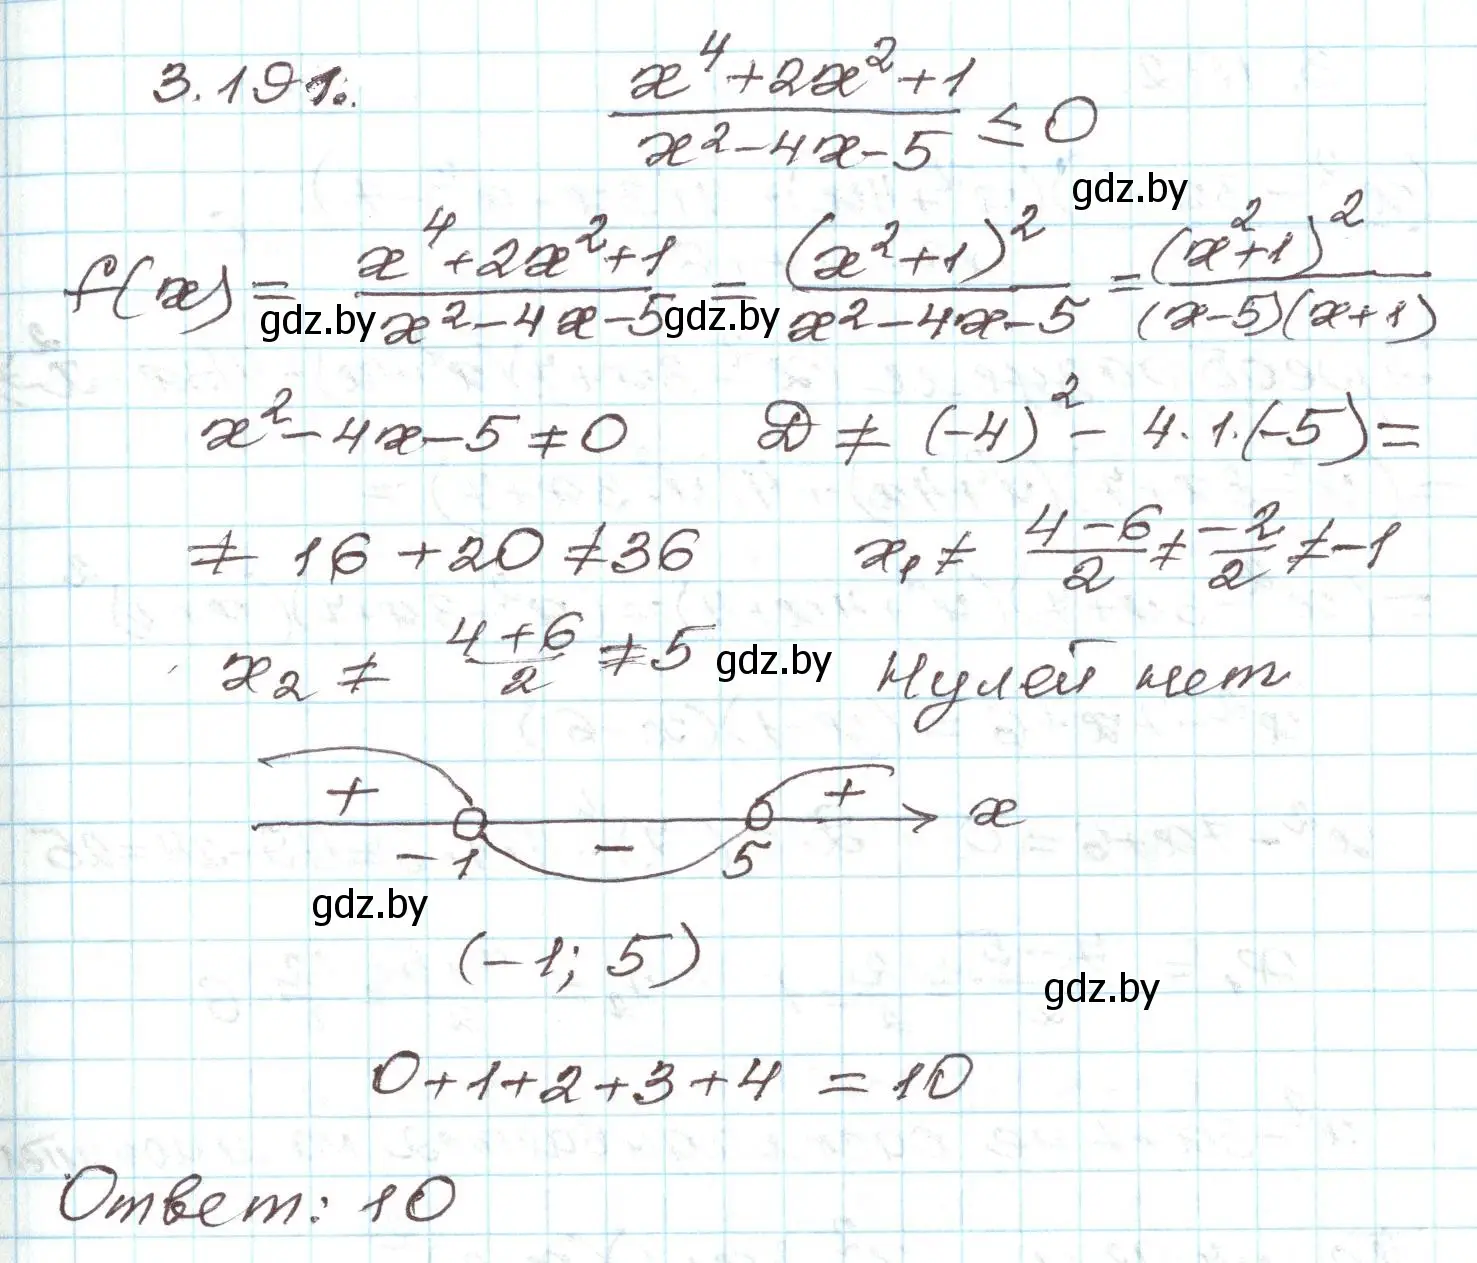 3.191. (x⁴+2x²+1)/(x²-4x-5) ≤ 0
gdz.by
f(x) = (x⁴+2x²+1)/(x²-4x-5) = (x²+1)²/(x²-4x-5) = (x²+1)²/((x-5)(x+1))
gdz.by gdz.by
x²-4x-5≠0 D ≠ (-4)² - 4·1·(-5) =
≠ 16 + 20 ≠ 36 x₁ ≠ (4-6)/2 ≠ -2/2 ≠ -1
x₂ ≠ (4+6)/2 ≠ 5 gdz.by Нулей нет
+ - + x
-1 5
gdz.by
(-1; 5)
gdz.by
0+1+2+3+4 = 10
Ответ: 10